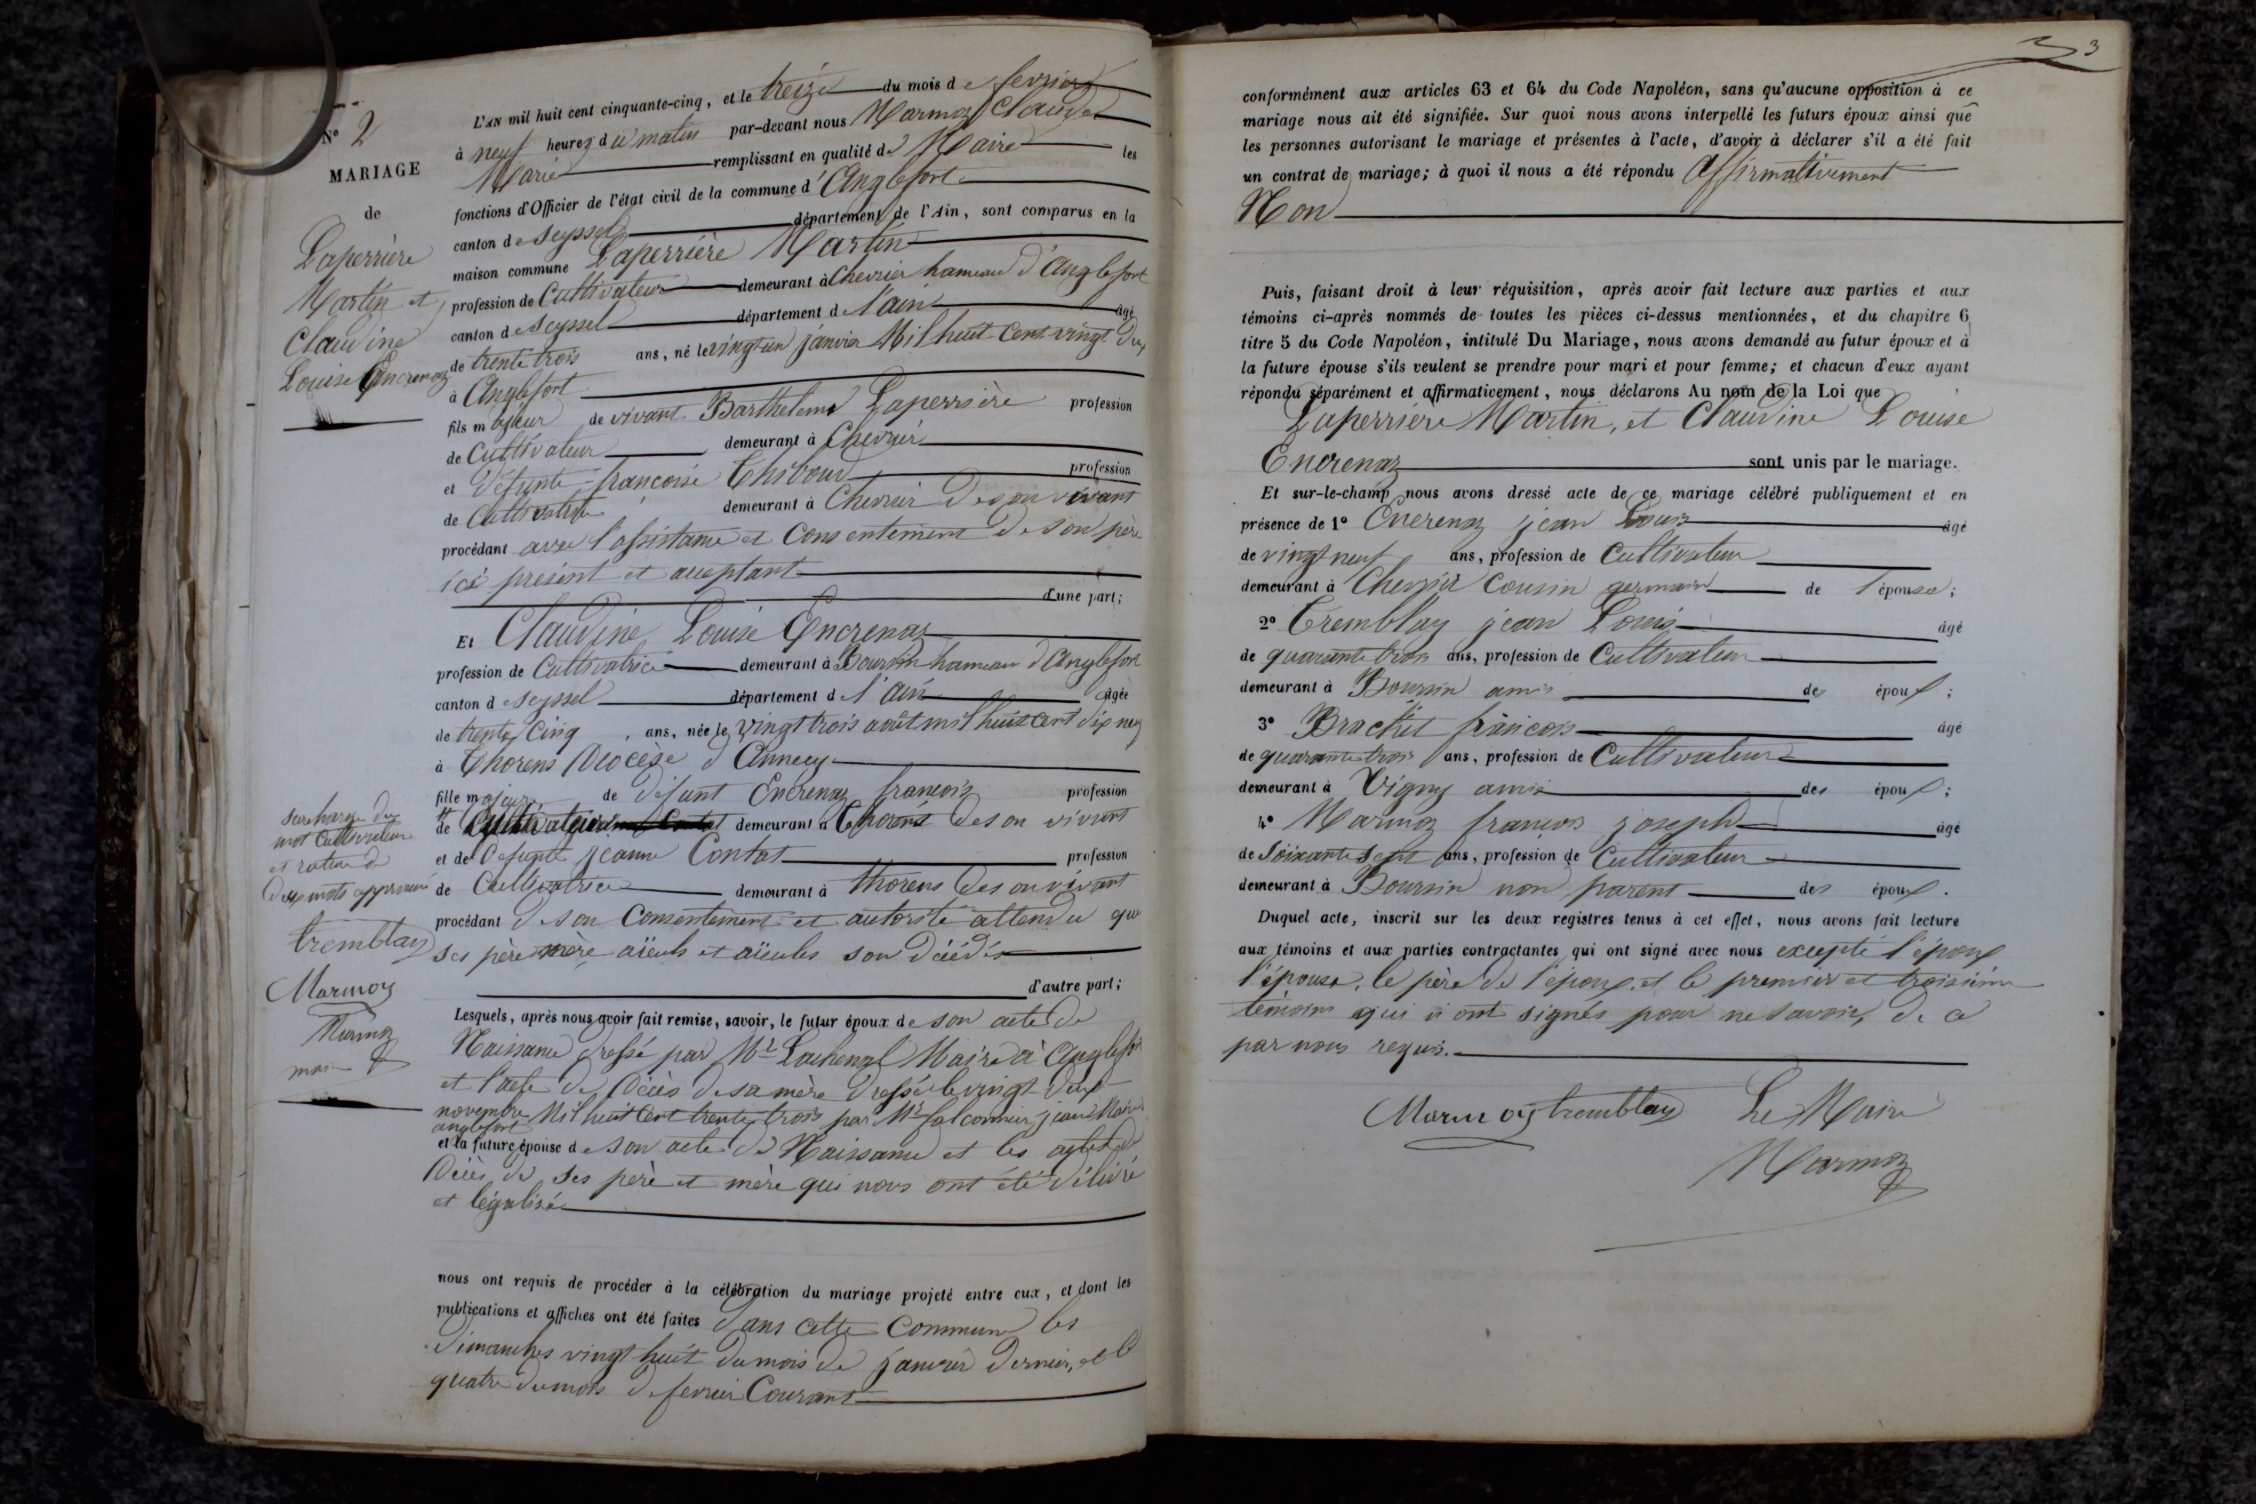 N° 2
MARIAGE
de
Laperrière
Martin et
Claudine
Louise Encrenaz
L'AN mil huit cent cinquante-cinq, et le treize du mois de fevrier
à neuf heures du matin par-devant nous Marmoz Claude
Marie remplissant en qualité de Maire les
fonctions d'Officier de l'état civil de la commune d'Anglefort
canton de seyssel département de l'Ain, sont comparus en la
maison commune Laperrière Martin
profession de Cultivateur demeurant à Chevrier hameau d'Anglefort
canton de seyssel département de l'ain âgé
de trente trois ans, né le vingt un janvier Mil huit cent vingt deux
à Anglefort
fils majeur de vivant Barthelemi Laperrière profession
de Cultivateur demeurant à Chevrier
et défunte françoise Thiboud profession
de Cultivatrice demeurant à Chevrier de son vivant
procédant avec l'assistance et consentement de son père
ici présent et acceptant
d'une part;
Et Claudine Louise Encrenaz
profession de Cultivatrice demeurant à Boursin hameau d'Anglefort
canton de seyssel département de l'ain âgée
de trente cinq ans, née le vingt trois août mil huit cent dix neuf
à Thorens Diocèse d'Annecy
fille majeur de défunt Encrenaz françois profession
de Cultivateur demeurant à Thorens de son vivant
et de Défunte jeanne Contat profession
de Cultivatrice demeurant à thorens de son vivant
procédant de son consentement et autorité attendu que
ses père mère aïeuls et aïeules son décédés
d'autre part;
surcharge du
mot Cultivateur
et rature de
deux mots approuvé
tremblay
Marmoz
Marmoz
Lesquels, après nous avoir fait remise, savoir, le futur époux de son acte de
Naissance dressé par Mr Lachenal Maire à Anglefort
et l'acte de Décès de sa mère dressé le vingt deux
novembre Mil huit cent trente trois par Mr falconnier jean Maire
anglefort
et la future épouse de son acte de Naissance et les actes de
Décès de ses père et mère qui nous ont été délivré
et légalisé
nous ont requis de procéder à la célébration du mariage projeté entre eux, et dont les
publications et affiches ont été faites dans cette commune les
dimanches vingt huit du mois de janvier dernier, et le
quatre du mois de fevrier Courant
3
conformément aux articles 63 et 64 du Code Napoléon, sans qu'aucune opposition à ce
mariage nous ait été signifiée. Sur quoi nous avons interpellé les futurs époux ainsi que
les personnes autorisant le mariage et présentes à l'acte, d'avoir à déclarer s'il a été fait
un contrat de mariage; à quoi il nous a été répondu affirmativement
Non
Puis, faisant droit à leur réquisition, après avoir fait lecture aux parties et aux
témoins ci-après nommés de toutes les pièces ci-dessus mentionnées, et du chapitre 6
titre 5 du Code Napoléon, intitulé Du Mariage, nous avons demandé au futur époux et à
la future épouse s'ils veulent se prendre pour mari et pour femme; et chacun d'eux ayant
répondu séparément et affirmativement, nous déclarons Au nom de la Loi que
Laperrière Martin, et Claudine Louise
Encrenaz sont unis par le mariage.
Et sur-le-champ nous avons dressé acte de ce mariage célébré publiquement et en
présence de 1° Encrenaz jean Louis âgé
de vingt neuf ans, profession de Cultivateur
demeurant à Chevrier cousin germain de l'épouse;
2° Tremblay jean Louis âgé
de quarante trois ans, profession de Cultivateur
demeurant à Boursin amis des époux;
3° Brachet françois âgé
de quarante trois ans, profession de Cultivateur
demeurant à Vigny amis des époux;
4° Marmoz françois joseph âgé
de soixante sept ans, profession de Cultivateur
demeurant à Boursin non parent des époux.
Duquel acte, inscrit sur les deux registres tenus à cet effet, nous avons fait lecture
aux témoins et aux parties contractantes qui ont signé avec nous excepté l'époux
l'épouse, le père de l'époux, et le premier et troisième
témoins qui n'ont signés pour ne savoir, de ce
par nous requis.
Marmoz tremblay Le Maire
Marmoz